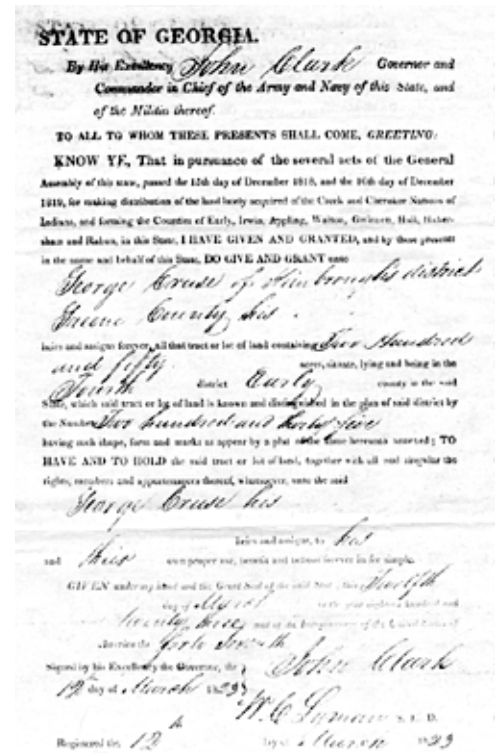 STATE OF GEORGIA.
By His Excellency John Clark Governor and
Commander in Chief of the Army and Navy of this State, and
of the Militia thereof.
TO ALL TO WHOM THESE PRESENTS SHALL COME, GREETING:
KNOW YE, That in pursuance of the several acts of the General
Assembly of this state, passed the 15th day of December 1818, and the 16th day of December
1819, for making distribution of the land lately acquired of the Creek and Cherokee Nations of
Indians, and forming the Counties of Early, Irwin, Appling, Walton, Gwinnett, Hall, Haber-
sham and Rabun, in this State, I HAVE GIVEN AND GRANTED, and by these presents
in the name and behalf of this State, DO GIVE AND GRANT unto
George Cruse of Kimbroughs district
Greene County his
heirs and assigns forever, all that tract or lot of land containing Two Hundred
and fifty acres, situate, lying and being in the
Fourth district Early county in the said
State, which said tract or lot of land is known and distinguished in the plan of said district by
the Number Two hundred and forty five
having such shape, form and marks as appear by a plat of the same hereunto annexed; TO
HAVE AND TO HOLD the said tract or lot of land, together with all and singular the
rights, members and appurtenances thereof, whatsoever, unto the said
George Cruse his
heirs and assigns, to his
and their own proper use, benefit and behoof forever in fee simple.
GIVEN under my hand and the Great Seal of the said State, this Twelfth
day of March in the year eighteen hundred and
twenty three and of the Independence of the United States of
America the forty seventh
Signed by his Excellency the Governor, the
12th day of March 1823 John Clark
W. C. Lyman S. E. D.
Registered the 12th day of March 1823